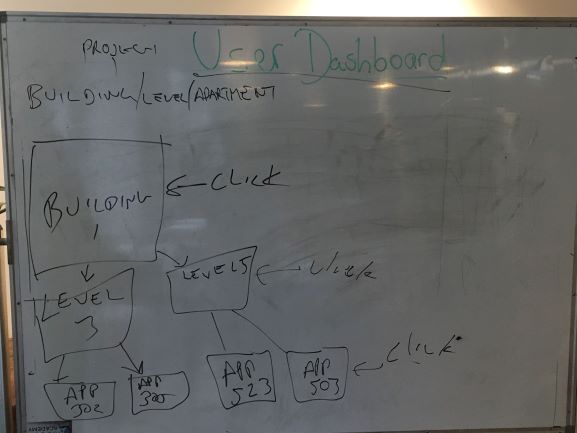 PROJECT
User Dashboard
BUILDING/LEVEL/APARTMENT
BUILDING
1
CLICK
LEVEL
3
LEVEL 5
CLICK
APP
302
APP
APP
523
APP
503
CLICK
ACADEMY